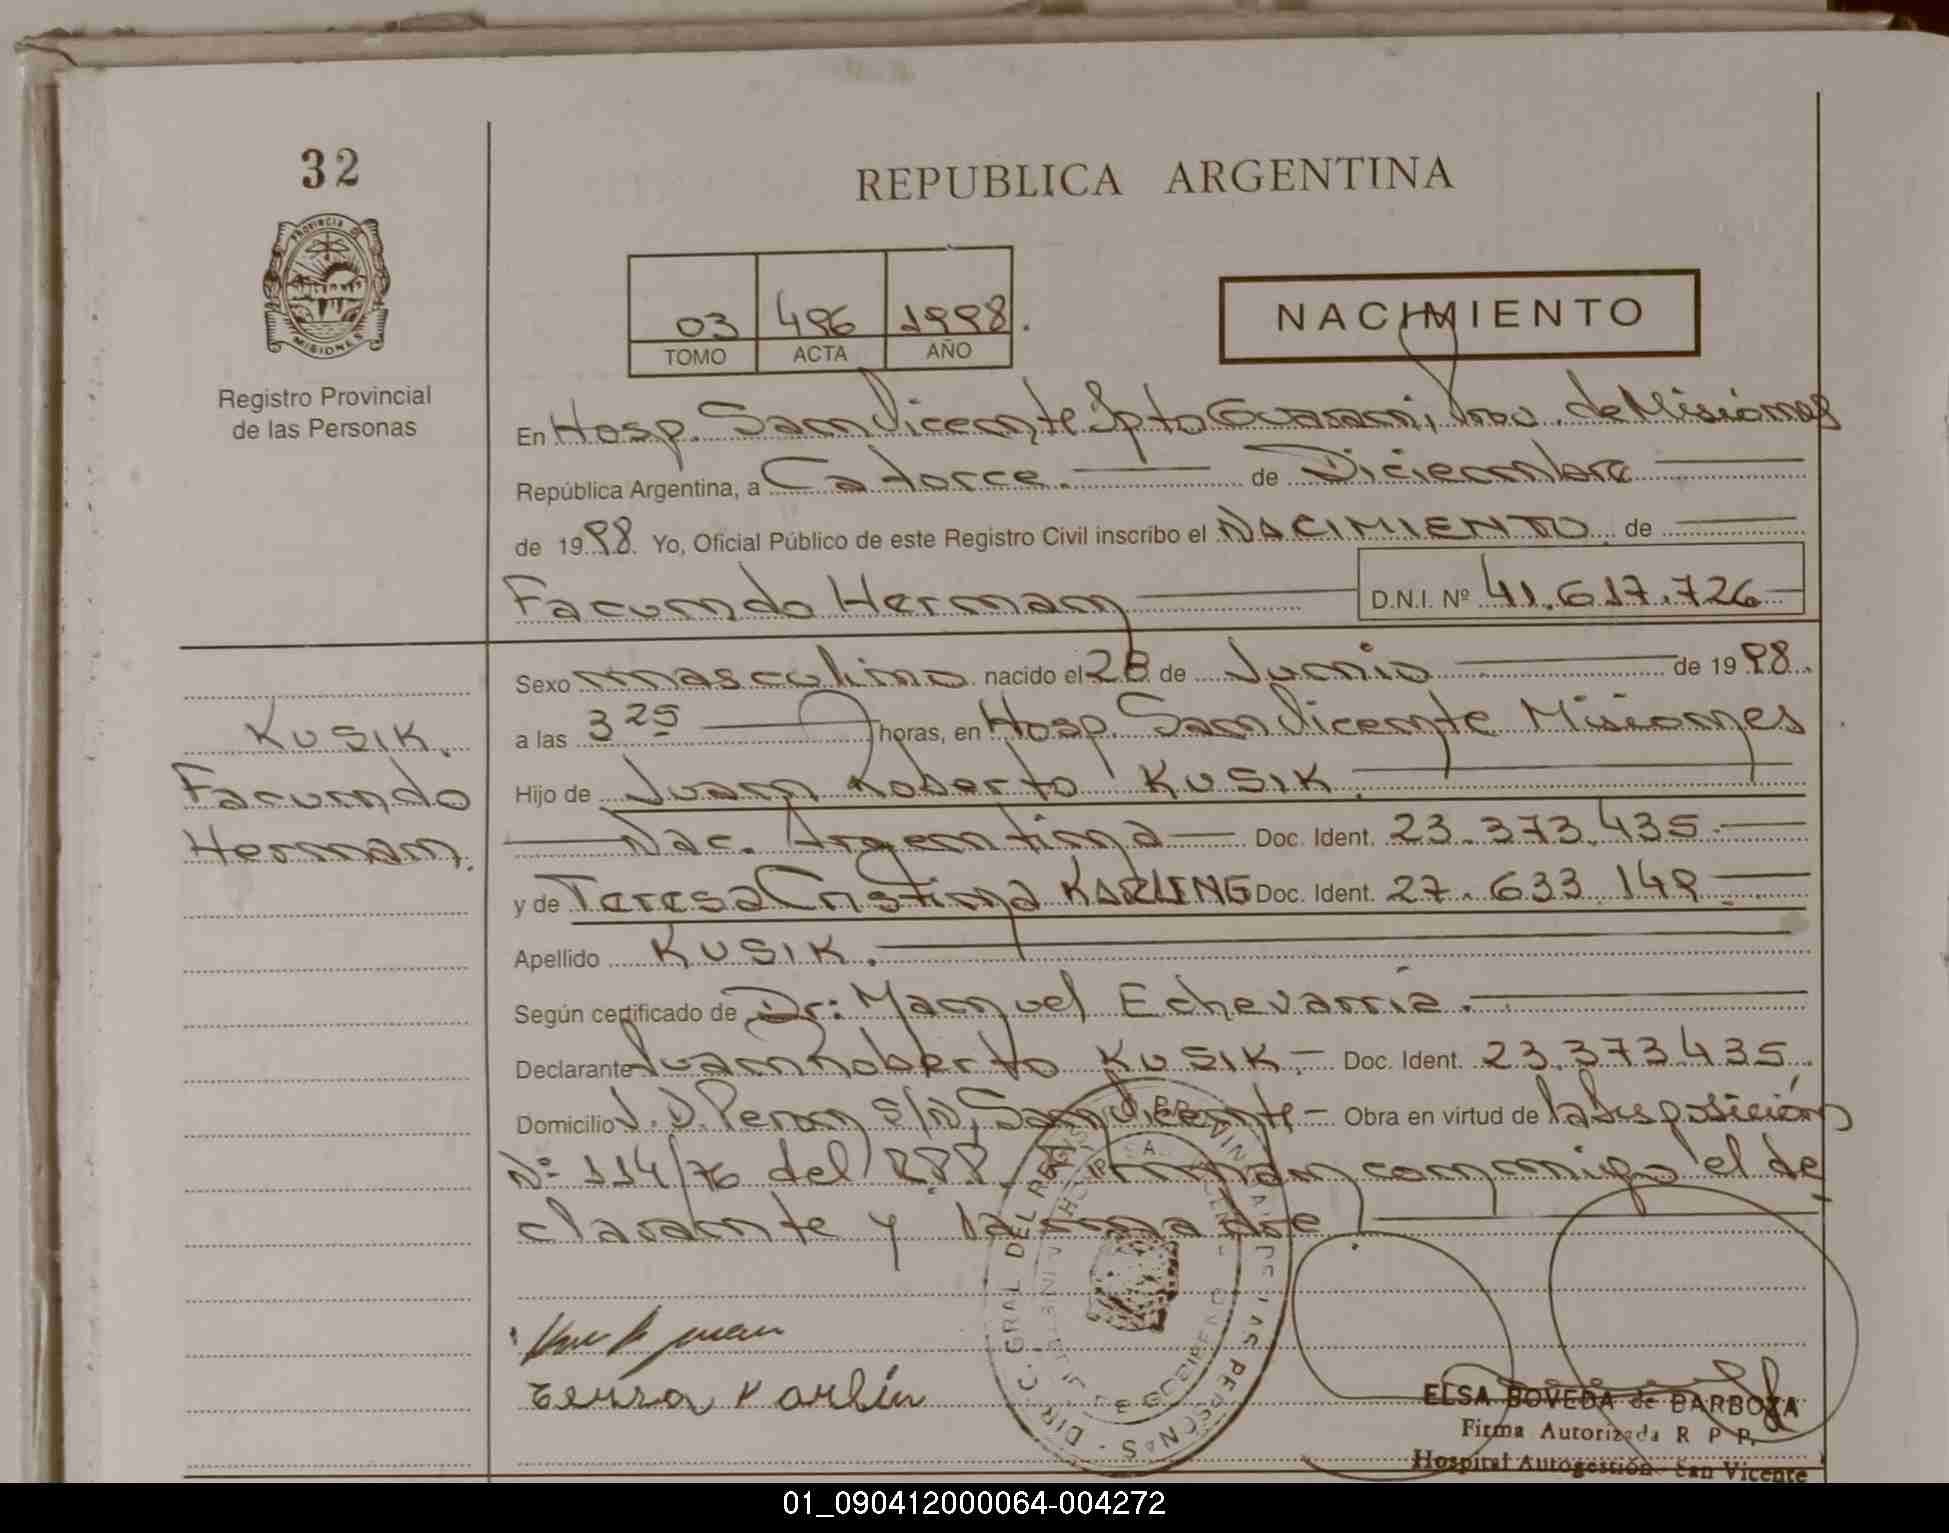 32
REPUBLICA ARGENTINA
PROVINCIA DE
MISIONES
Registro Provincial
de las Personas
03 496 1998.
TOMO ACTA AÑO
NACIMIENTO
En Hosp. San Vicente Dpto Guarani, Prov. de Misiones
República Argentina, a Catorce. de Diciembre
de 1998 Yo, Oficial Público de este Registro Civil inscribo el NACIMIENTO de
Facundo Hernan D.N.I. Nº 41.617.726
Sexo masculino nacido el 28 de Junio de 1998.
KUSIK.
Facundo
Hernan.
a las 3 25 horas, en Hosp. San Vicente Misiones
Hijo de Juan Roberto KUSIK.
Nac. Argentina Doc. Ident. 23.373.435.
y de Teresa Cristina KARLENG Doc. Ident. 27.633.149
Apellido KUSIK.
Según certificado de Dr: Manuel Echevarría.
Declarante Juan Roberto KUSIK. Doc. Ident. 23.373.435.
Domicilio J.D. Peron s/n, San Vicente - Obra en virtud de la Disposición
Nº 114/76 del R.P.P. Firman conmigo el de
clarante y la madre
DIR. GRAL DEL REGIS. PROVINCIAL DE LAS PERSONAS
juan
Teresa Karlin
ELSA BOVEDA de BARBOZA
Firma Autorizada R P P.
Hospital Autogestión San Vicente
01_090412000064-004272